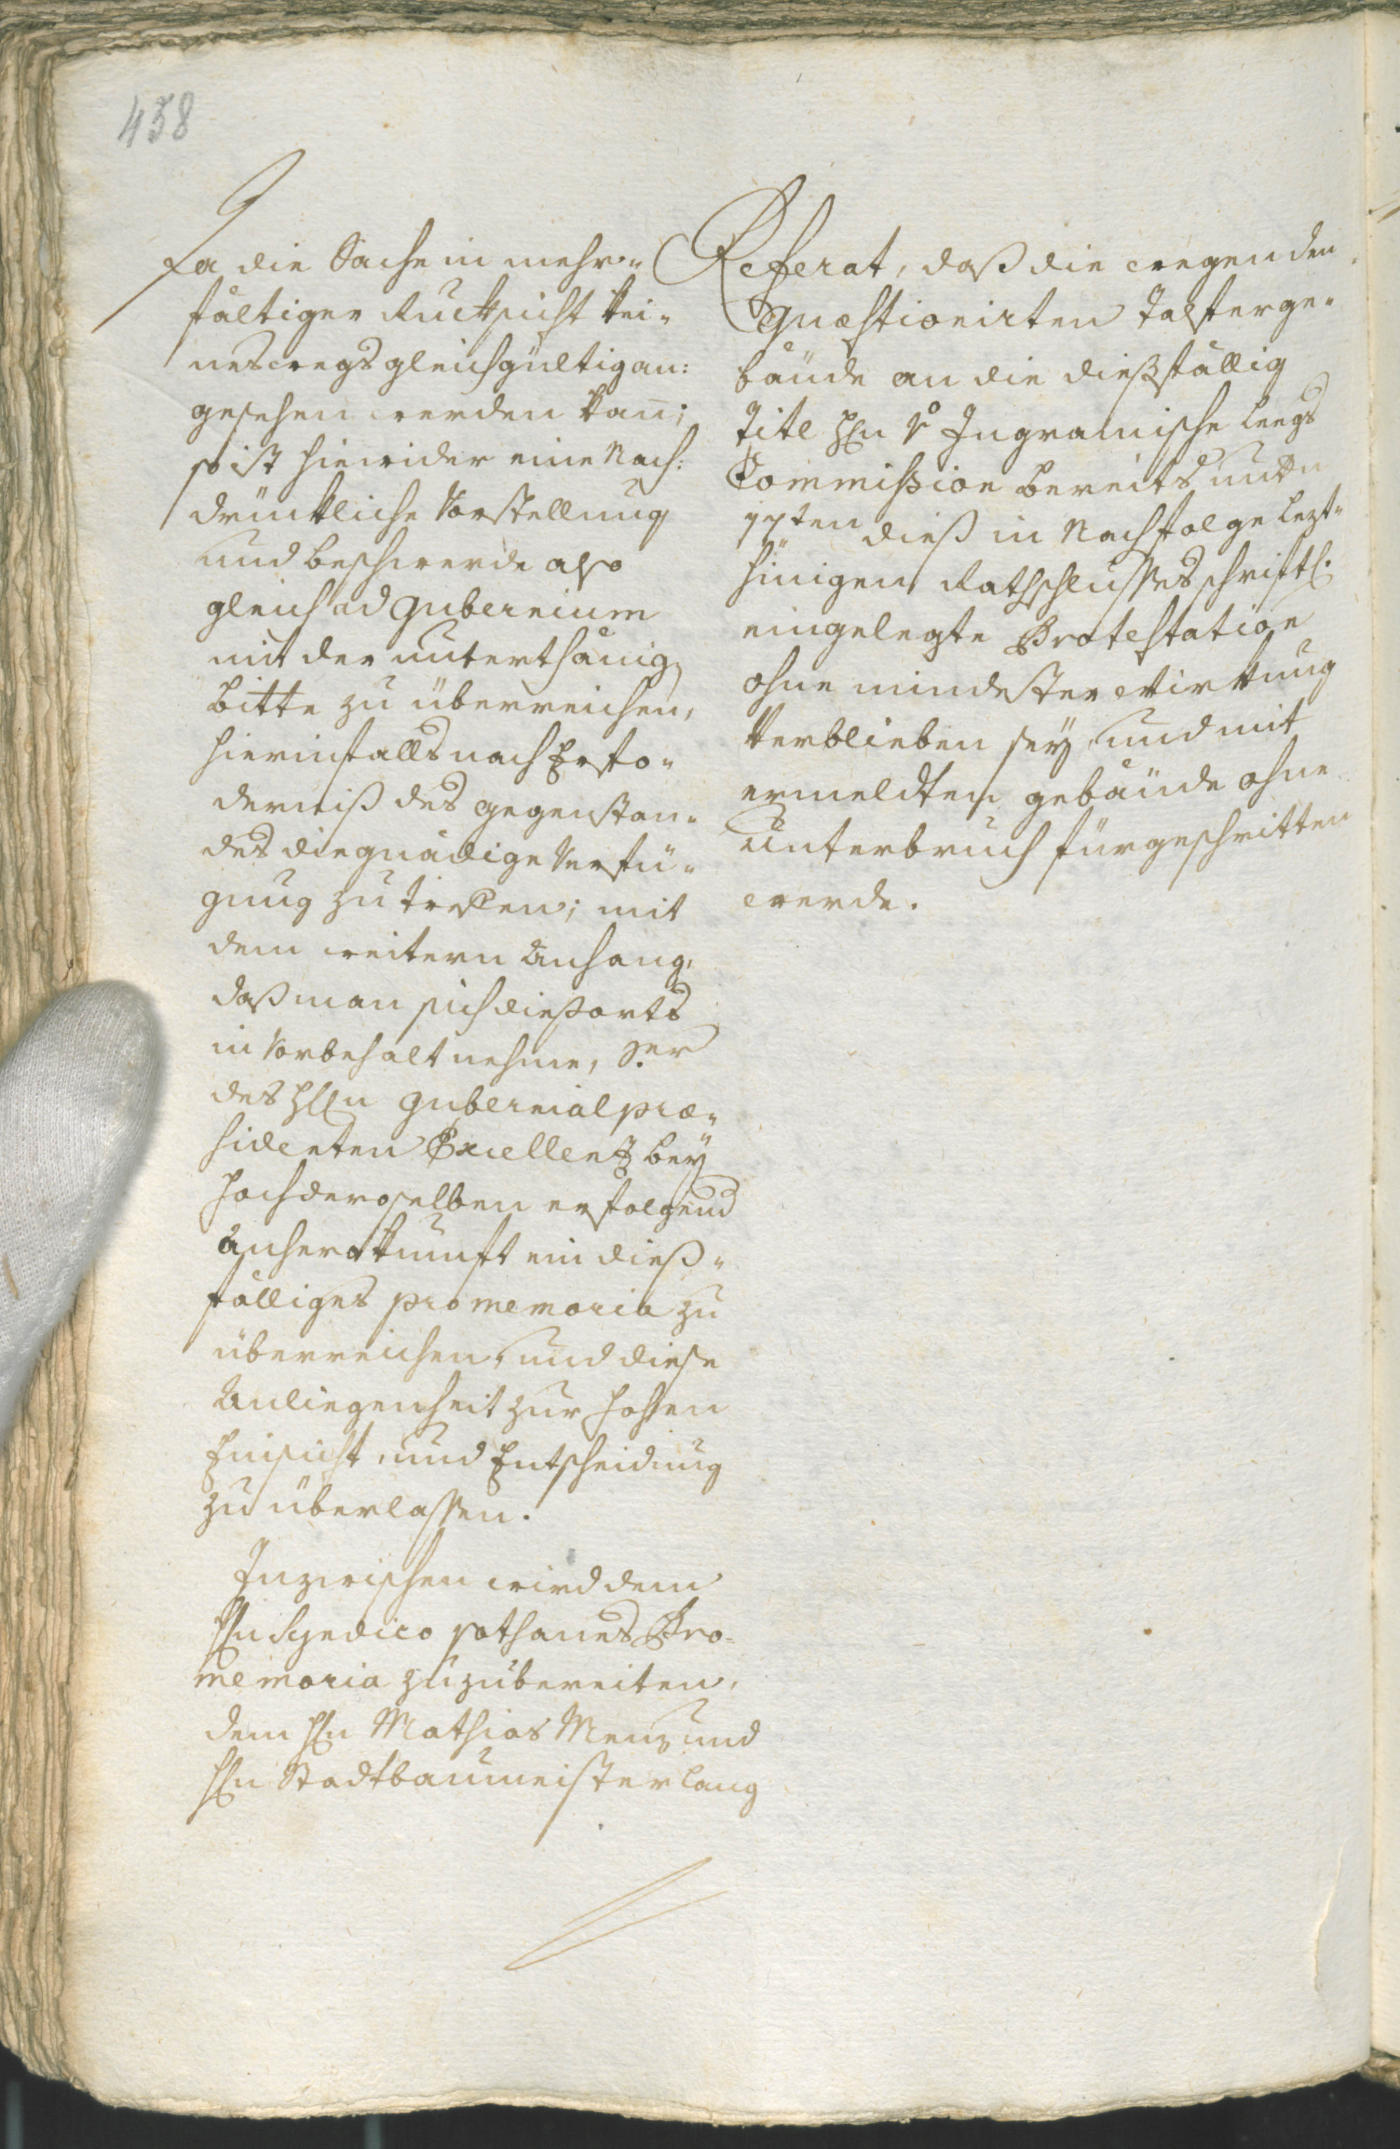 458
Da die Sache in mehr-
fältiger Rucksicht kei-
neswegs gleichgültig an:
gesehen werden kan̄;
so ist hierwider eine Nach:
drückliche Vorstellung
und beschwerde also
gleich ad Gubernium
mit der unterthänig
bitte zu überreichen,
hierinfalls nach Erfo-
derniß des gegenstan-
des die gnädige Verfü-
gung zu treffen; mit
dem weitern Anhang,
daß man sich dießorts
in Vorbehalt nehme, Sr
des Hℓn Gubernial præ-
sidenten Excellenz bey
hochderoselben erfolgend
Anherokunft ein dieß-
fälliges promemoria zu
überreichen, und diese
Anliegenheit zur hohen
Einsicht, und Entscheidung
zu überlassen.
Inzwischen wird dem
Hℓn Syndico sothanes Pro-
memoria zuzubereiten,
dem Hℓn Mathias Menz und
Hℓn Stadtbaumeister lang
Referat, daß die wegen den
quæstionirten Talferge-
bäude an die dießfällig
Titl Hℓn v Ingramische Leegs
Commission bereits untern
17ten dieß in Nachfolge lezt-
hinigen Rathschlusses schriftl:
eingelegte Protestation
ohne mindester Wirkung
verblieben sey, und mit
ermeldten gebäude ohne
Unterbruch fürgeschritten
werde.